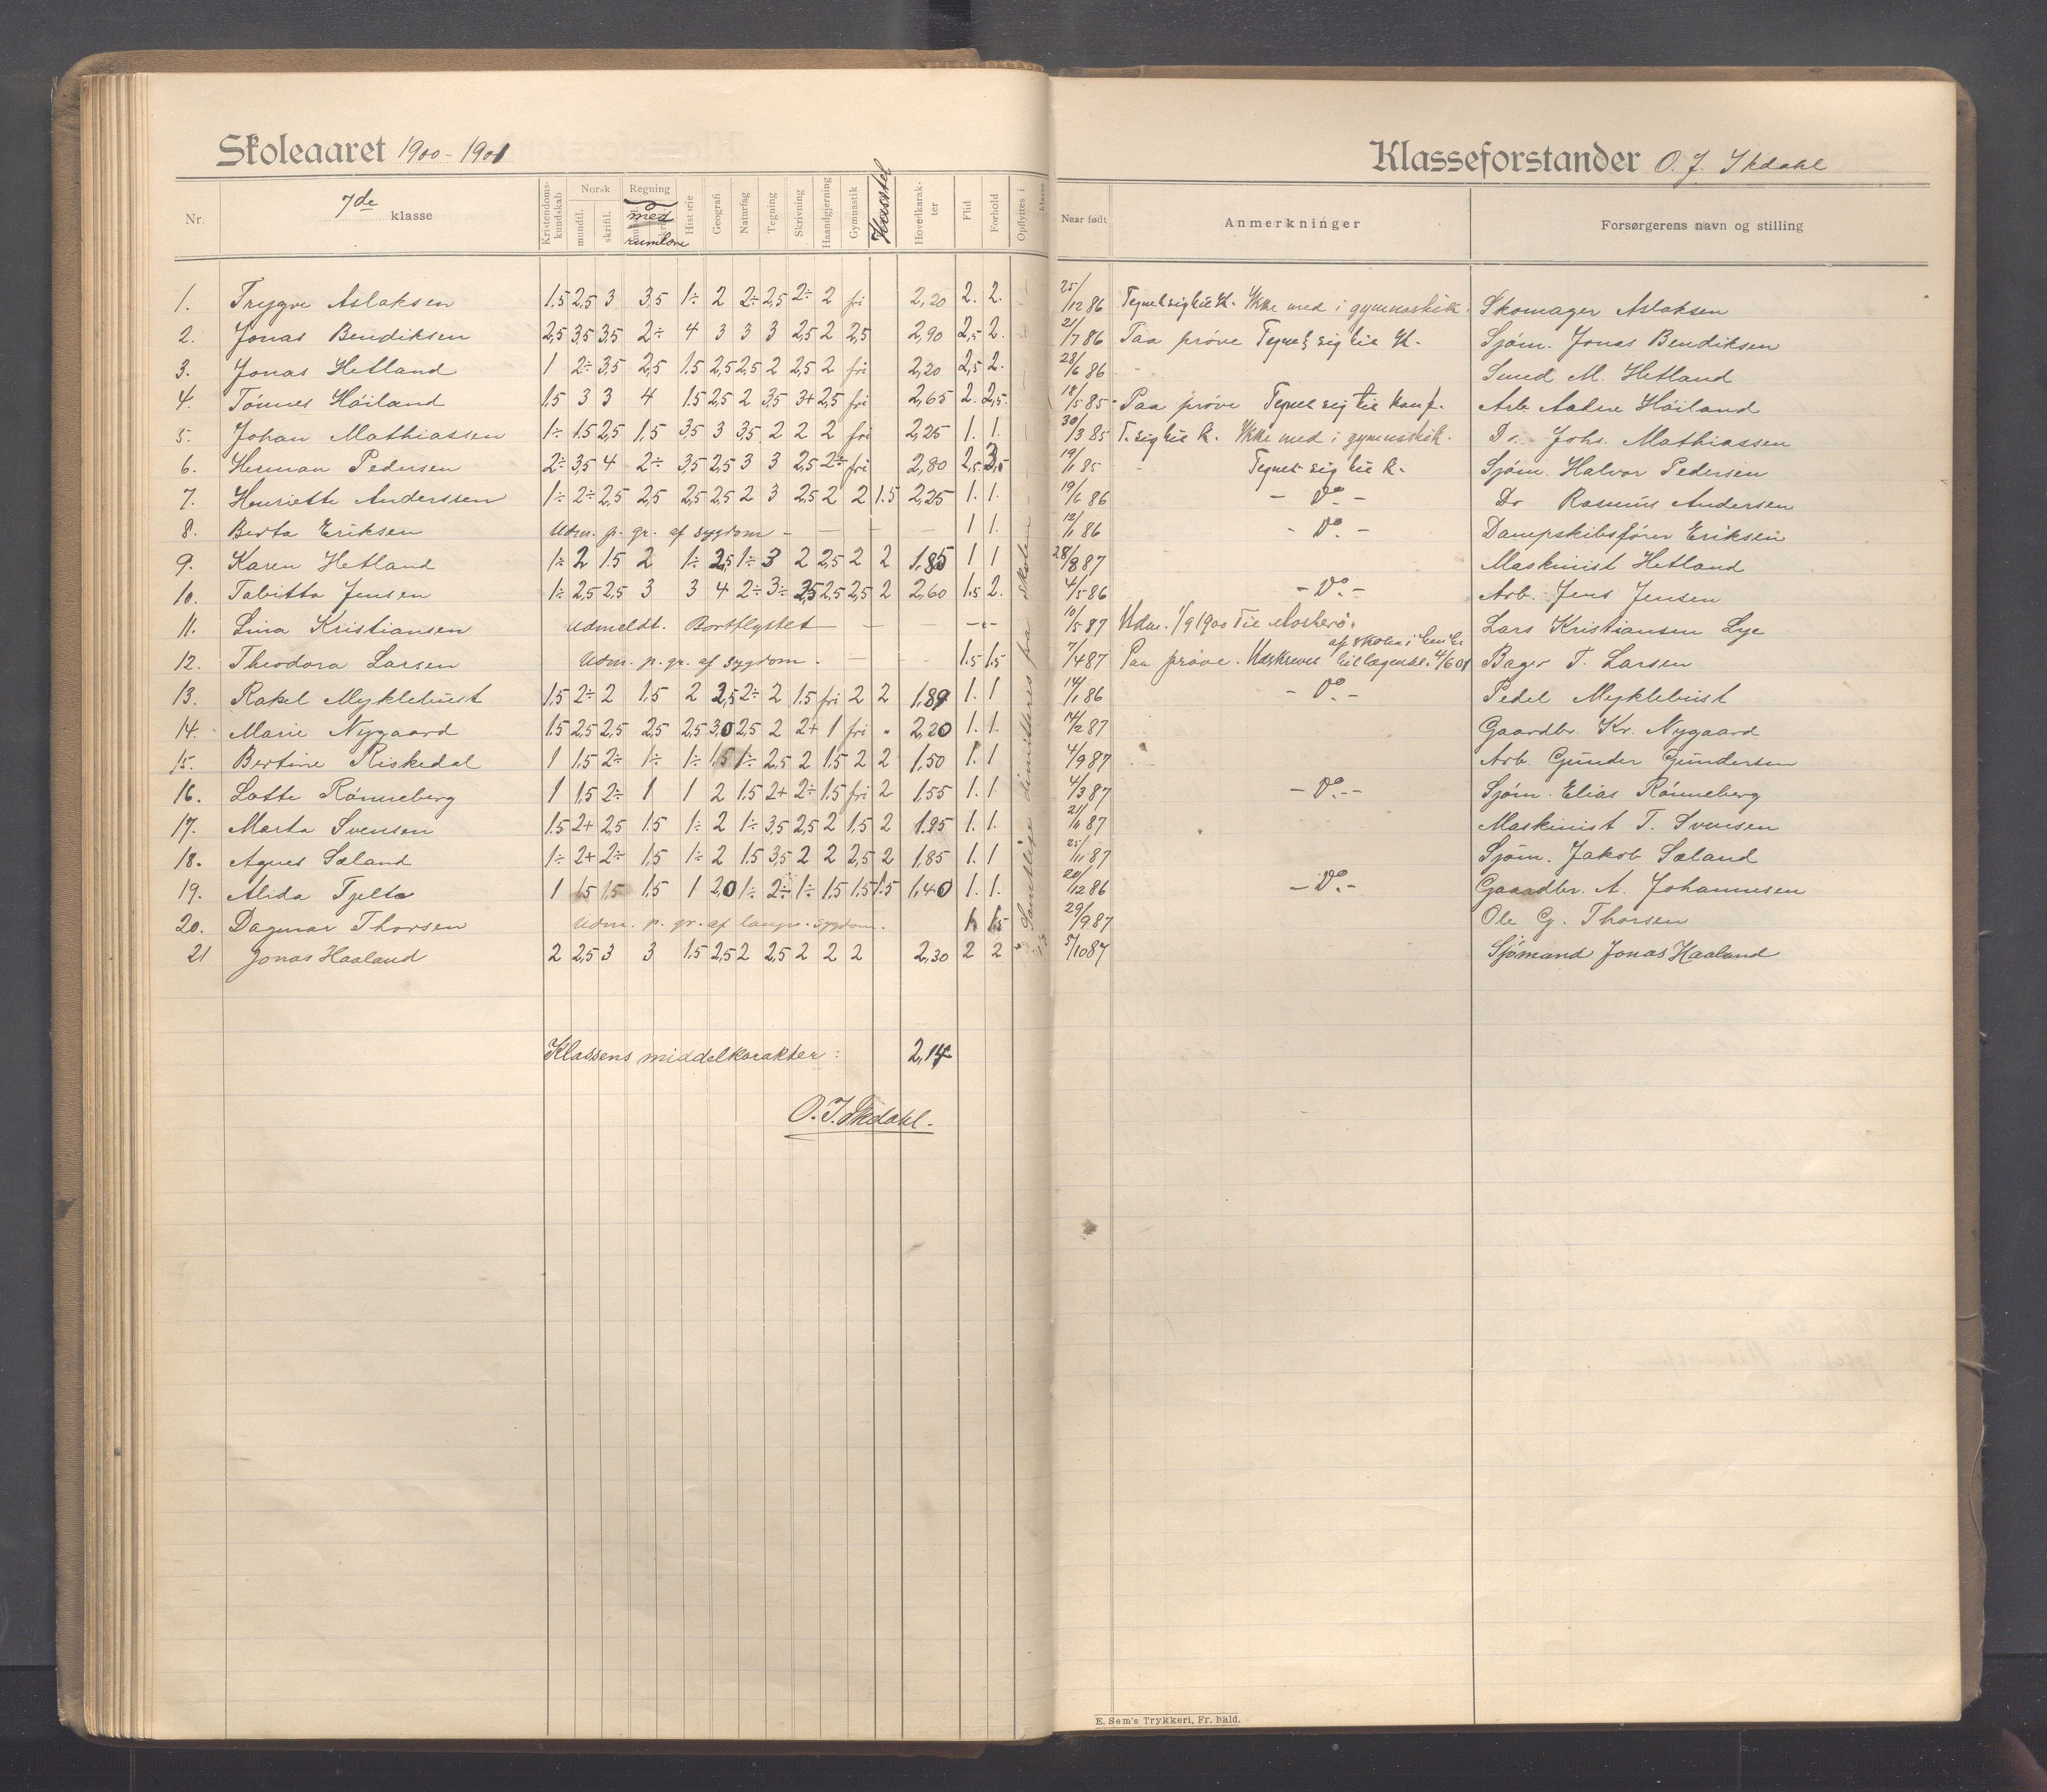 Skoleaaret 1900-1901
Klasseforstander O. J. Skdahl
Nr.
7de klasse
Kristendoms-kundskab
Norsk
mundtl.
skriftl.
Regning
med
rumlære
Historie
Geografi
Naturfag
Tegning
Skrivning
Haandgjerning
Gymnastik
Husstel
Hovedkarakter
Flid
Forhold
Opflyttes i klasse
Naar født
Anmerkninger
Forsørgerens navn og stilling
1. Trygve Aslaksen 1.5 2,5 3 3,5 1÷ 2 2÷ 2,5 2÷ 2 fri 2,20 2. 2. 25/12 86 Tegnet sig til K. Ikke med i gymnastik. Skomager Aslaksen
2. Jonas Bendiksen 2,5 3,5 3,5 2÷ 4 3 3 3 2,5 2 2,5 2,90 2,5 2. 21/7 86 Paa prøve Tegnet sig til K. Sjøm. Jonas Bendiksen
3. Jonas Hetland 1 2÷ 3,5 2,5 1.5 2,5 2,5 2 2,5 2 fri 2,20 2,5 2. 28/6 86 Smed M. Hetland
4. Tønnes Høiland 1.5 3 3 4 1.5 2,5 2 3,5 3+ 2,5 fri 2,65 2. 2,5. 18/5 85 Paa prøve Tegnet sig til konf. Arb. Aadne Høiland
5. Johan Mathiassen 1÷ 1.5 2,5 1,5 3,5 3 3,5 2 2 2 fri 2,25 1. 1. 30/3 85 T. sig til k. Ikke med i gymnastik. Do. Johs. Mathiassen
6. Herman Pedersen 2÷ 3,5 4 2÷ 3,5 2,5 3 3 2,5 2÷ fri 2,80 2,5 3,5 19/1 85 Tegnet sig til k. Sjøm. Halvor Pedersen
7. Henriette Anderssen 1÷ 2÷ 2,5 2,5 2,5 2,5 2 3 2,5 2 2 1.5 2,25 1. 1. 19/6 86 - Do - Do Rasmus Andersen
8. Berta Eriksen Udm. p. gr. af sygdom - 1 1. 12/1 86 - Do - Dampskibsfører Eriksen
9. Karen Hetland 1÷ 2 1.5 2 1÷ 2,5 1÷ 3 2 2,5 2 2 1,85 1 1 28/8 87 Maskinist Hetland
10. Tabitta Jensen 1÷ 2,5 2,5 3 3 4 2÷ 3÷ 2,5 2,5 2,5 2 2,60 1.5 2. 4/5 86 - Do - Arb. Jens Jensen
11. Lina Kristiansen Udmeldt. Bortflyttet 10/5 87 Udm. 1/9 1900 til Mosterø. Lars Kristiansen Lye
12. Theodora Larsen Udm. p. gr. af sygdom. 1.5 1.5 7/4 87 Paa prøve. Udskreven af skolen i henh. til lægeatt. 4/6 01 Bager T. Larsen
13. Rakel Myklebust 1.5 2÷ 2 1.5 2 2,5 2÷ 2 1.5 fri 2 2 1,89 1. 1 14/1 86 - Do - Pedel Myklebust
14. Marie Nygaard 1.5 2,5 2,5 2,5 2,5 3,0 2,5 2 2+ 1 fri . 2,20 1. 1. 14/2 87 Gaardbr. Kr. Nygaard
15. Bertine Riskedal 1 1,5 2÷ 1÷ 1÷ 1,5 1÷ 2,5 2 1.5 2 2 1,50 1. 1 4/9 87 Arb. Gunder Gundersen
16. Lotte Rønneberg 1 1,5 2÷ 1 1 2 1.5 2+ 2÷ 1.5 fri 2 1.55 1. 1 4/3 87 - Do - Sjøm. Elias Rønneberg
17. Marta Svensen 1.5 2+ 2,5 1.5 1÷ 2 1÷ 3,5 2,5 2 1,5 2 1.95 1. 1. 21/1 87 Maskinist T. Svensen
18. Agnes Sæland 1÷ 2+ 2÷ 1,5 1÷ 2 1.5 3,5 2 2 2,5 2 1,85 1. 1 25/11 87 Sjøm. Jakob Sæland
19. Alida Tjelta 1 1.5 1.5 1.5 1 2,0 1÷ 2÷ 1÷ 1.5 1.5 1.5 1.40 1. 1. 20/12 86 - Do - Gaardbr. A. Johannesen
20. Dagmar Thorsen Udm. p. gr. af langv. sygdom. 1. 1.5 29/9 87 Ole G. Thorsen
21 Jonas Haaland 2 2,5 3 3 1.5 2,5 2 2,5 2 2 2 2,30 2 2 5/10 87 Sjømand Jonas Haaland
Samtlige dimitteres fra skolen
Klassens middelkarakter: 2,14
O. J. Skdahl.
E. Sem's Trykkeri, Fr. hald.